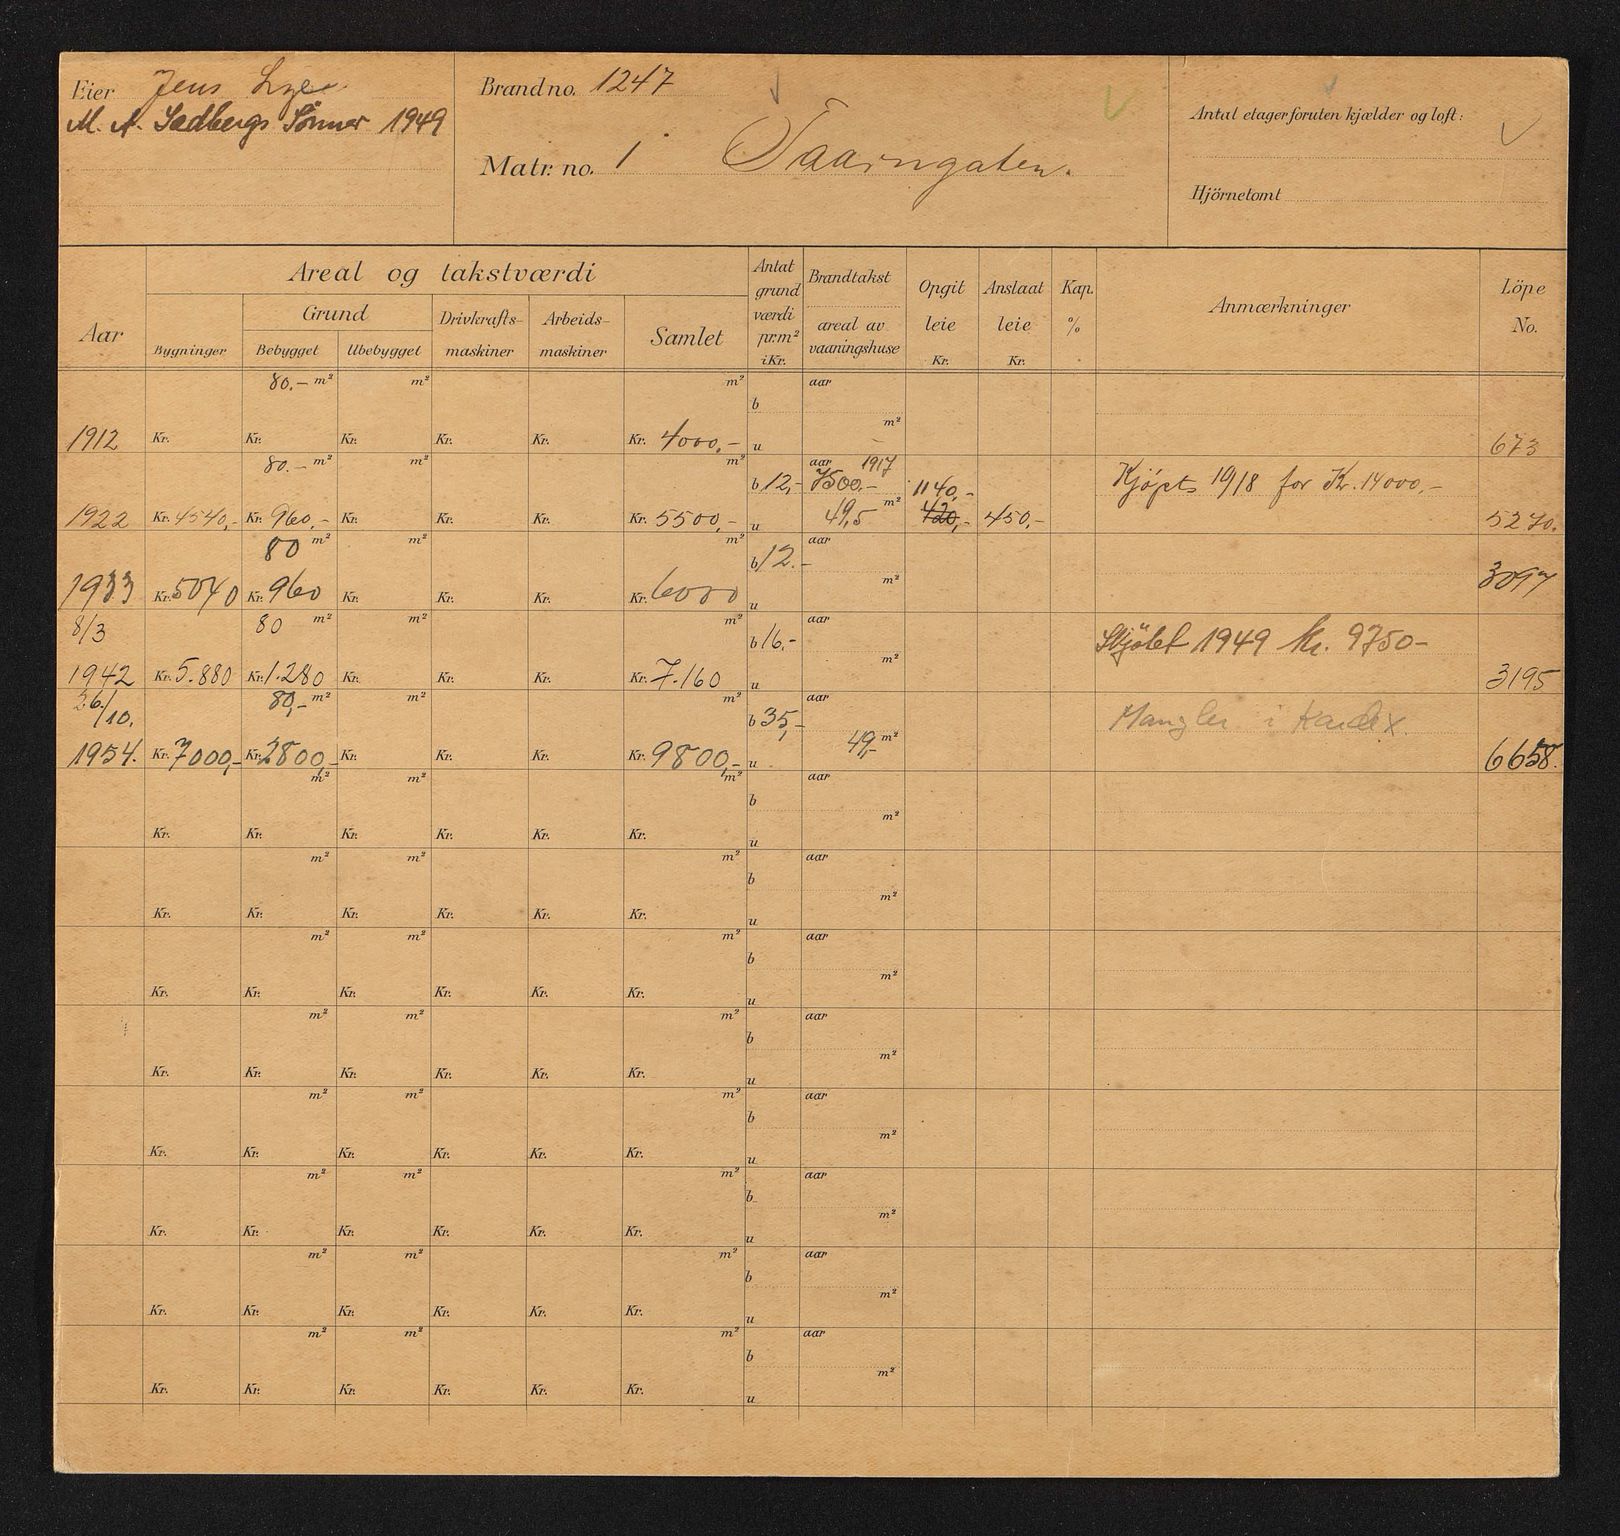 Eier Jens Lye
M. A. Sædbergs Sønner 1949
Brand no. 1247
Matr. no. 1 Taarngaten.
Antal etager foruten kjælder og loft:
Hjörnetomt
Aar
Areal og takstværdi
Bygninger
Grund
Bebygget Ubebygget
Drivkrafts-maskiner
Arbeids-maskiner
Samlet
Antat grund værdi pr. m² i Kr.
Brandtakst
areal av vaaningshuse
Opgit leie Kr.
Anslaat leie Kr.
Kap. %
Anmærkninger
Löpe No.
80.- m² m² m² aar
b m²
1912 Kr. Kr. Kr. Kr. Kr. Kr. 4000,- u 673
80.- m² m² m² aar 1917
b 12,- 7500,- 1140,- Kjøpts 1918 for Kr. 14000,-
1922 Kr. 4540,- Kr. 960,- Kr. Kr. Kr. Kr. 5500,- u 49,5 m² 420,- 450,- 5270.
80 m² m² m² aar
b 12.- m²
1933 Kr. 5040 Kr. 960 Kr. Kr. Kr. Kr. 6000 u 3097
8/3 80 m² m² m² aar
b 16,- m² Skjøtet 1949 kr. 9750-
1942 Kr. 5.880 Kr. 1.280 Kr. Kr. Kr. Kr. 7.160 u 3195
26/10. 80,- m² m² m² aar
b 35,- 49,- m² Mangler i Kardex.
1954. Kr. 7000,- Kr. 2800,- Kr. Kr. Kr. Kr. 9800,- u 6658.
m² m² m² aar
b m²
Kr. Kr. Kr. Kr. Kr. Kr. u
m² m² m² aar
b m²
Kr. Kr. Kr. Kr. Kr. Kr. u
m² m² m² aar
b m²
Kr. Kr. Kr. Kr. Kr. Kr. u
m² m² m² aar
b m²
Kr. Kr. Kr. Kr. Kr. Kr. u
m² m² m² aar
b m²
Kr. Kr. Kr. Kr. Kr. Kr. u
m² m² m² aar
b m²
Kr. Kr. Kr. Kr. Kr. Kr. u
m² m² m² aar
b m²
Kr. Kr. Kr. Kr. Kr. Kr. u
m² m² m² aar
b m²
Kr. Kr. Kr. Kr. Kr. Kr. u